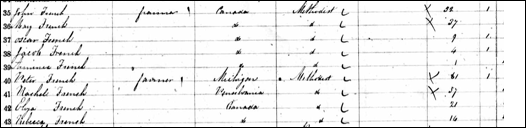 35 John French farmer 1 Canada Methodist 38 1
36 Mary French " " 37
37 Oscar French " " 9 1
38 Jacob French " " 4 1
39 French " " 1
40 Peter French farmer 1 Michigan Methodist 61 1
41 Rachel French " 57
42 Eliza French Canada " 21
43 Rebecca French " " 16